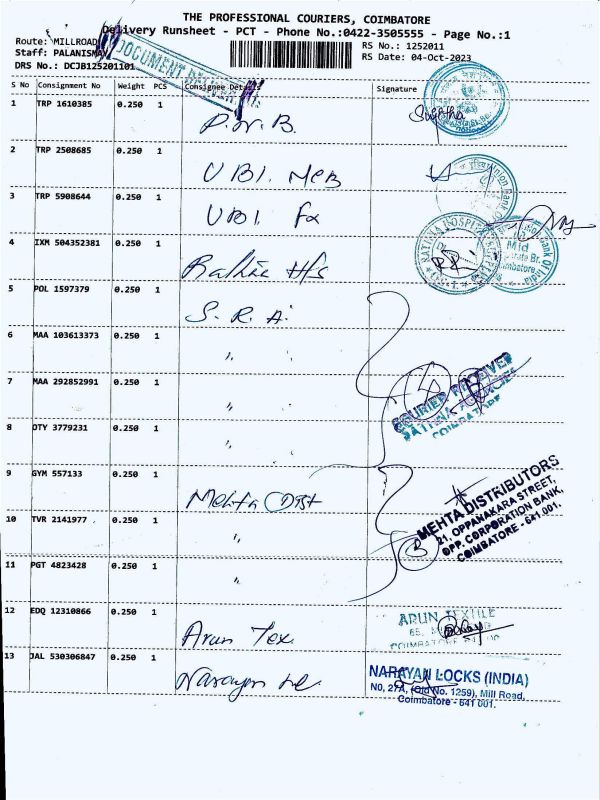 THE PROFESSIONAL COURIERS, COIMBATORE
Delivery Runsheet - PCT - Phone No.:0422-3505555 - Page No.:1
Route: MILLROAD
RS No.: 1252011
Staff: PALANISMAY
RS Date: 04-Oct-2023
DRS No.: DCJB125201101
DOCUMENT
S No Consignment No Weight PCS Consignee Details Signature
1 TRP 1610385 0.250 1 P.N.B. Sujatha
2 TRP 2508685 0.250 1 UBI. MCB
3 TRP 5908644 0.250 1 UBI. Fx
4 IXM 504352381 0.250 1 Rathie Hfs
5 POL 1597379 0.250 1 S. R. A.
6 MAA 103613373 0.250 1 "
7 MAA 292852991 0.250 1 "
COURIER RECEIVER
COIMBATORE
8 OTY 3779231 0.250 1 "
9 GYM 557133 0.250 1 Mehta Dist
MEHTA DISTRIBUTORS
21, OPPANAKARA STREET,
OPP. CORPORATION BANK,
COIMBATORE - 641 001.
10 TVR 2141977 0.250 1 "
11 PGT 4823428 0.250 1 "
12 EDQ 12310866 0.250 1 Arun Tex
ARUN TEXTILE
13 JAL 530306847 0.250 1 Narayan
NARAYAN LOCKS (INDIA)
NO, 27A, (Old No. 1259), Mill Road,
Coimbatore - 641 001.